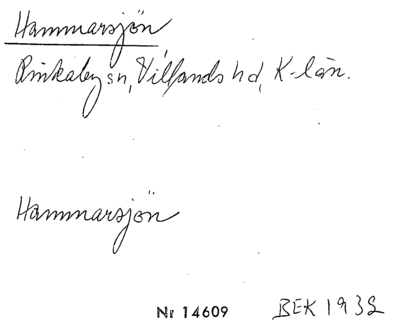 Hammarsjön
Rinkaby sn, Villands hd, K-län.
Hammarsjön
Nr 14609 BEK 1932